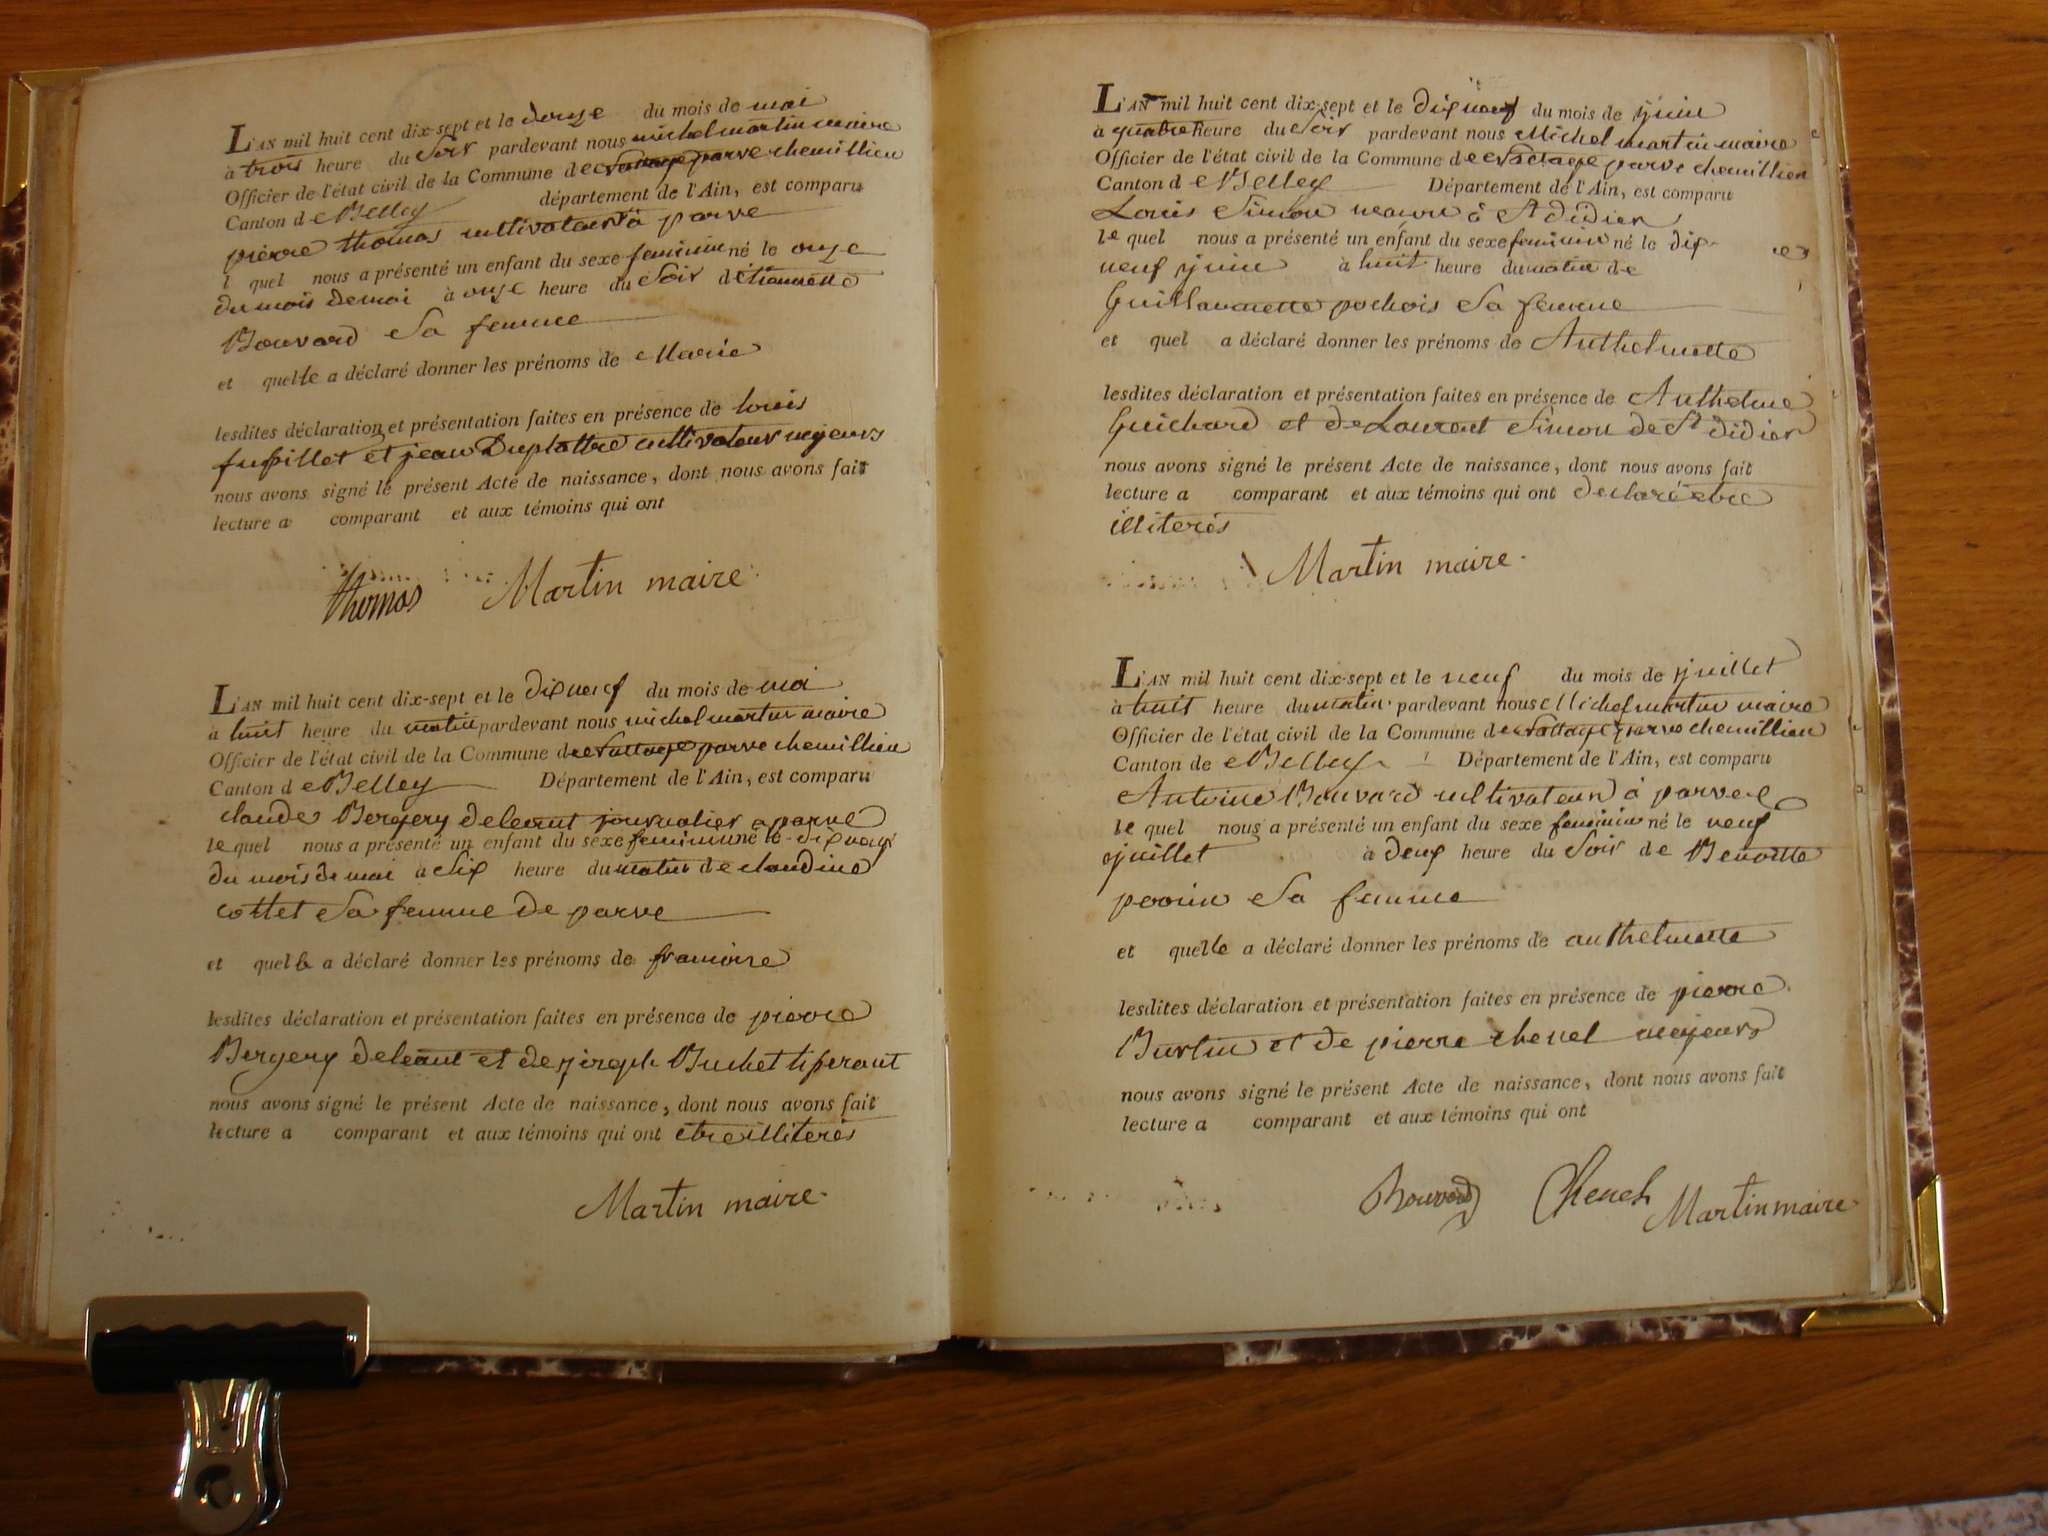 L'AN mil huit cent dix-sept et le douze du mois de mai
à trois heure du soir pardevant nous michel martin maire
Officier de l'état civil de la Commune de parve chemillieu
Canton de Belley département de l'Ain, est comparu
pierre thomas cultivateur à parve
l quel nous a présenté un enfant du sexe feminin né le onze
du mois de mai à onze heure du soir d'étiennette
Bouvard sa femme
et quelle a déclaré donner les prénoms de Marie
lesdites déclaration et présentation faites en présence de louis
fusillet et jean Duplattre cultivateur
nous avons signé le présent Acte de naissance, dont nous avons fait
lecture a comparant et aux témoins qui ont
Thomas Martin maire
L'AN mil huit cent dix-sept et le dix neuf du mois de mai
à huit heure du matin pardevant nous michel martin maire
Officier de l'état civil de la Commune de parve chemillieu
Canton de Belley Département de l'Ain, est comparu
claude Bergery journalier a parve
le quel nous a présenté un enfant du sexe feminin né le dix neuf
du mois de mai à six heure du matin de claudine
cottet sa femme de parve
et quelle a déclaré donner les prénoms de francoise
lesdites déclaration et présentation faites en présence de pierre
Bergery et de joseph Buchet
nous avons signé le présent Acte de naissance, dont nous avons fait
lecture a comparant et aux témoins qui ont etre illiterés
Martin maire
L'AN mil huit cent dix-sept et le dix neuf du mois de juin
à quatre heure du soir pardevant nous Michel martin maire
Officier de l'état civil de la Commune de parve chemillien
Canton de Belley Département de l'Ain, est comparu
Louis Simon à St didier
le quel nous a présenté un enfant du sexe feminin né le dix
neuf juin à huit heure du matin de
Guillaumette pochois sa femme
et quel a déclaré donner les prénoms de Anthelmette
lesdites déclaration et présentation faites en présence de Anthelme
Guichard et de Laurent Simon de St didier
nous avons signé le présent Acte de naissance, dont nous avons fait
lecture a comparant et aux témoins qui ont declaré etre
illiterés
Martin maire
L'AN mil huit cent dix-sept et le neuf du mois de juillet
à huit heure du matin pardevant nous Michel martin maire
Officier de l'état civil de la Commune de parve chemillieu
Canton de Belley Département de l'Ain, est comparu
Antoine Bouvard cultivateur à parve
le quel nous a présenté un enfant du sexe feminin né le neuf
juillet à deux heure du soir de Benoitte
perrin sa femme
et quelle a déclaré donner les prénoms de anthelmette
lesdites déclaration et présentation faites en présence de pierre
Burtin et de pierre chenel
nous avons signé le présent Acte de naissance, dont nous avons fait
lecture a comparant et aux témoins qui ont
Bouvard Chenel Martin maire